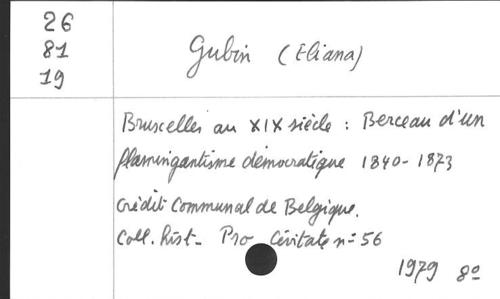 26
81
19
Gubin (Eliana)
Bruxelles au XIX siècle : Berceau d'un
flamingantisme démocratique 1840-1873
Crédit Communal de Belgique.
Coll. hist. Pro Civitate n: 56
1979 8º